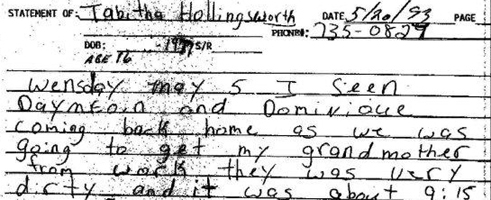 STATEMENT OF: Tabitha Hollingsworth DATE 5/20/93 PAGE
PHONE#: 735-0829
DOB: -1977 S/R
AGE 16
Wensday may 5 I seen
Dayntoin and Dominique
coming back home as we was
going to get my grandmother
from work they was very
dirty and it was about 9:15